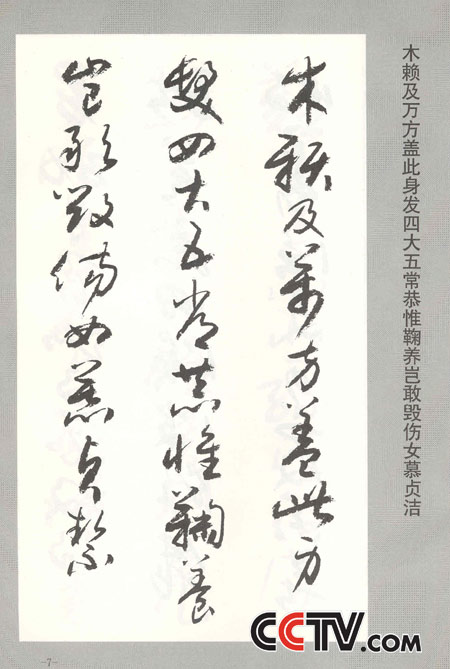 木赖及万方盖此身发四大五常恭惟鞠养岂敢毁伤女慕贞洁
木賴及萬方盖此身
髮四大五常恭惟鞠養
豈敢毀傷女慕貞絜
-7-
CCTV.com